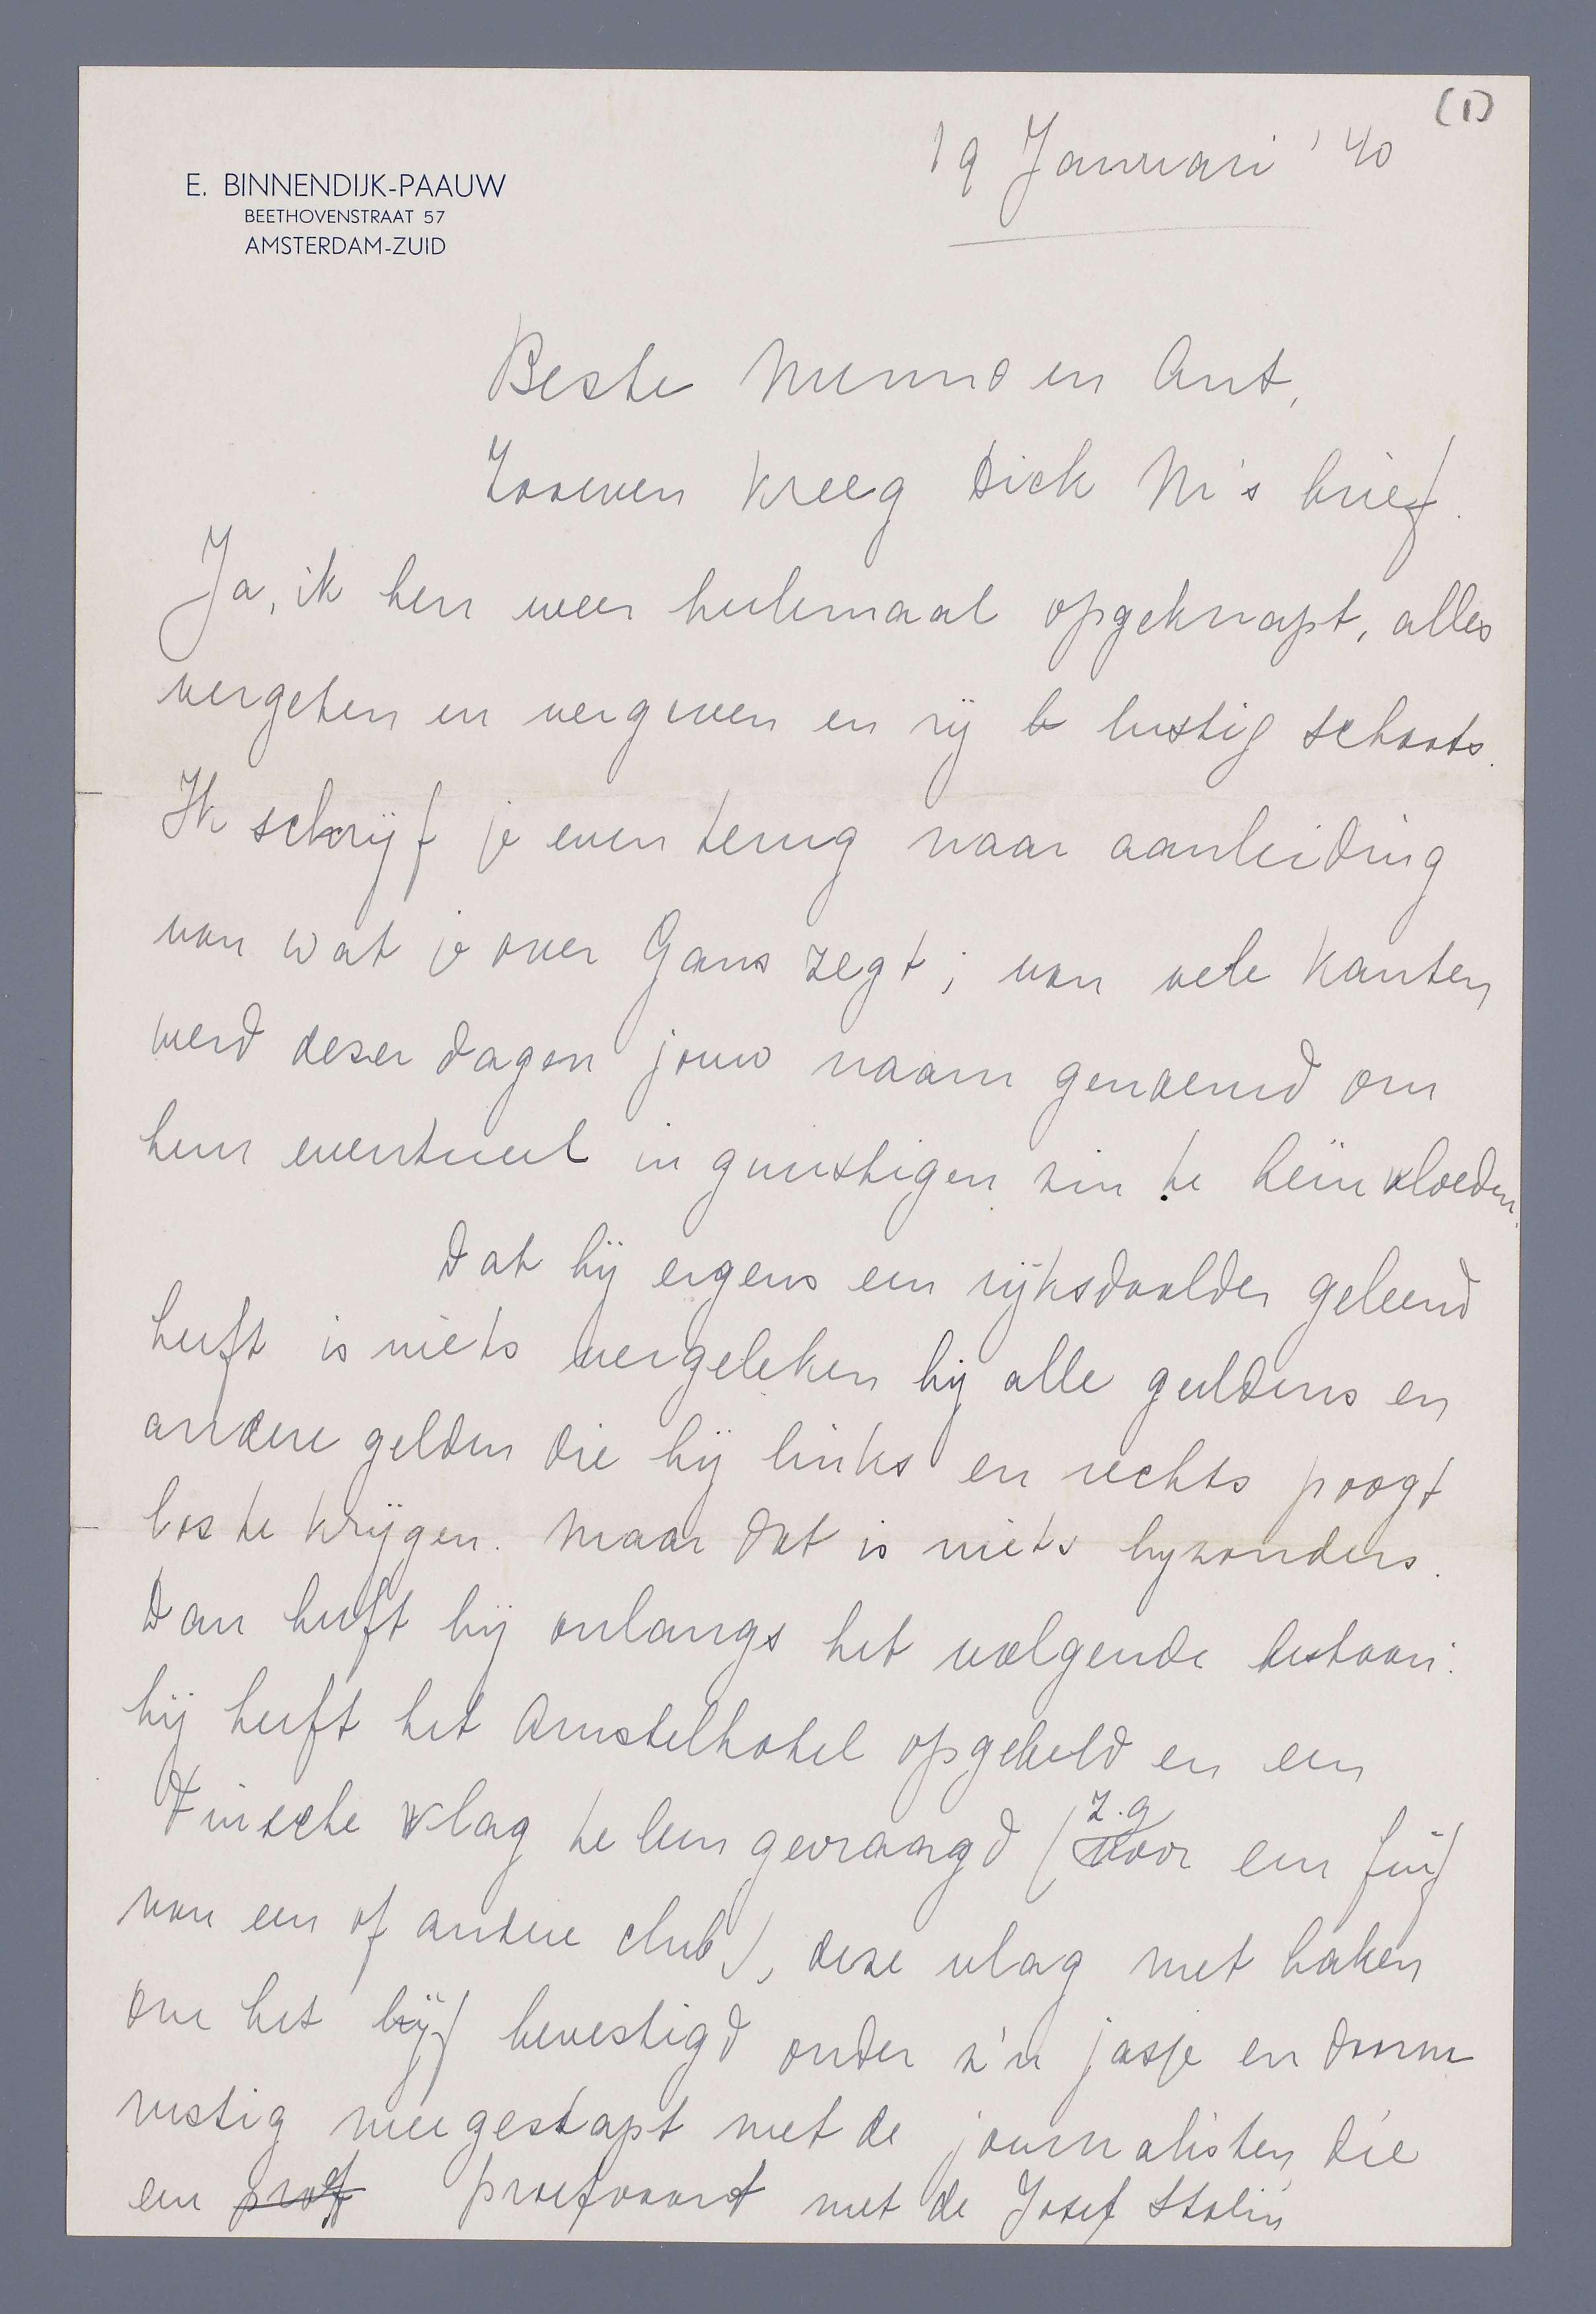 (1)
19 Januari '40
E. BINNENDIJK-PAAUW
BEETHOVENSTRAAT 57
AMSTERDAM-ZUID
Beste Menno en Ant,
Zooeven kreeg Dick M's brief.
Ja, ik ben weer heelemaal opgeknapt, alles
vergeten en vergeven en rij lustig schaats.
Ik schrijf je even terug naar aanleiding
van wat je over Gans zegt; van vele kanten
werd dezer dagen jouw naam genoemd om
hem eventueel in gunstigen zin te beïnvloeden.
Dat hij ergens een rijksdaalder geleend
heeft is niets vergeleken bij alle guldens en
andere gelden die hij links en rechts poogt
los te krijgen. Maar dat is niets bijzonders.
Dan heeft hij onlangs het volgende bestaan:
hij heeft het Amstelhotel opgebeld en een
Finsche vlag te leen gevraagd (z.g. voor een fuif
van een of andere club), deze vlag met haken
om het lijf bevestigd onder z'n jasje en daarna
rustig meegestapt met de journalisten die
een proef proefvaart met de Josef Stalin